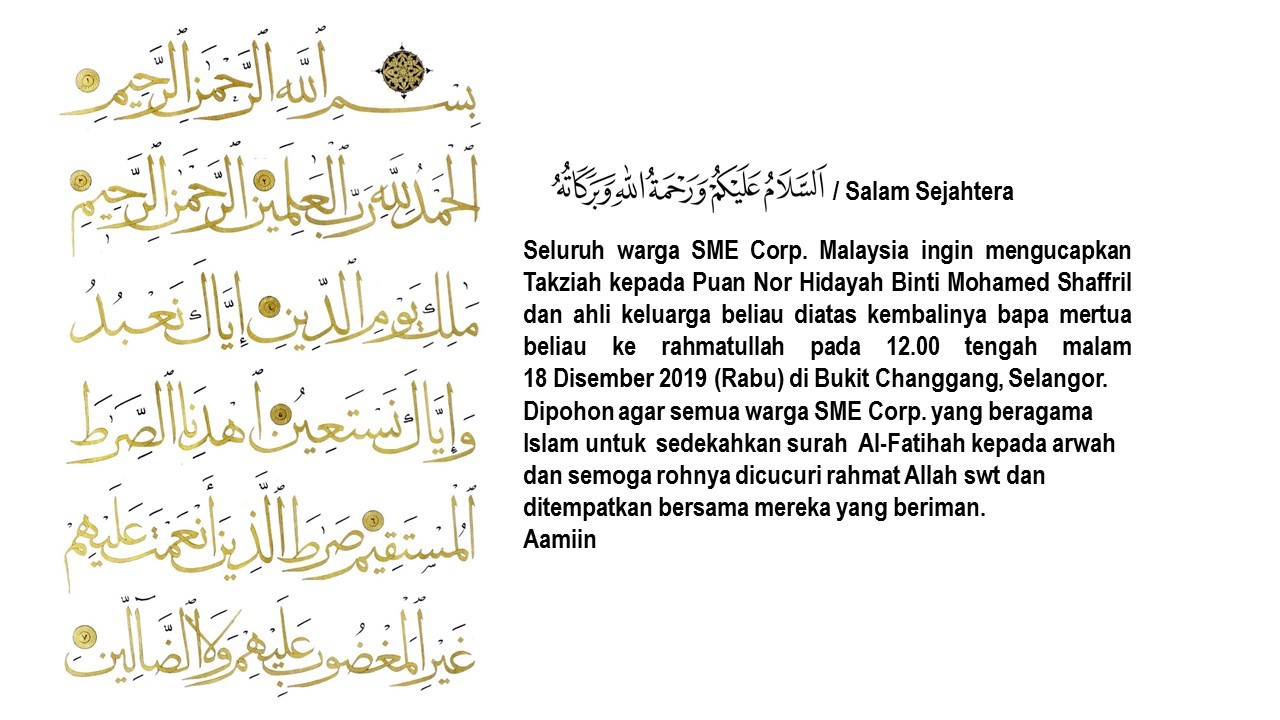 بِسْمِ ٱللَّهِ ٱلرَّحْمَٰنِ ٱلرَّحِيمِ ١
ٱلْحَمْدُ لِلَّهِ رَبِّ ٱلْعَٰلَمِينَ ٢ ٱلرَّحْمَٰنِ ٱلرَّحِيمِ ٣
مَٰلِكِ يَوْمِ ٱلدِّينِ ٤ إِيَّاكَ نَعْبُدُ
وَإِيَّاكَ نَسْتَعِينُ ٥ ٱهْدِنَا ٱلصِّرَٰطَ
ٱلْمُسْتَقِيمَ ٦ صِرَٰطَ ٱلَّذِينَ أَنْعَمْتَ عَلَيْهِمْ
غَيْرِ ٱلْمَغْضُوبِ عَلَيْهِمْ وَلَا ٱلضَّآلِّينَ ٧
اَلسَّلَامُ عَلَيْكُمْ وَرَحْمَةُ اللهِ وَبَرَكَاتُهُ / Salam Sejahtera
Seluruh warga SME Corp. Malaysia ingin mengucapkan
Takziah kepada Puan Nor Hidayah Binti Mohamed Shaffril
dan ahli keluarga beliau diatas kembalinya bapa mertua
beliau ke rahmatullah pada 12.00 tengah malam
18 Disember 2019 (Rabu) di Bukit Changgang, Selangor.
Dipohon agar semua warga SME Corp. yang beragama
Islam untuk sedekahkan surah Al-Fatihah kepada arwah
dan semoga rohnya dicucuri rahmat Allah swt dan
ditempatkan bersama mereka yang beriman.
Aamiin